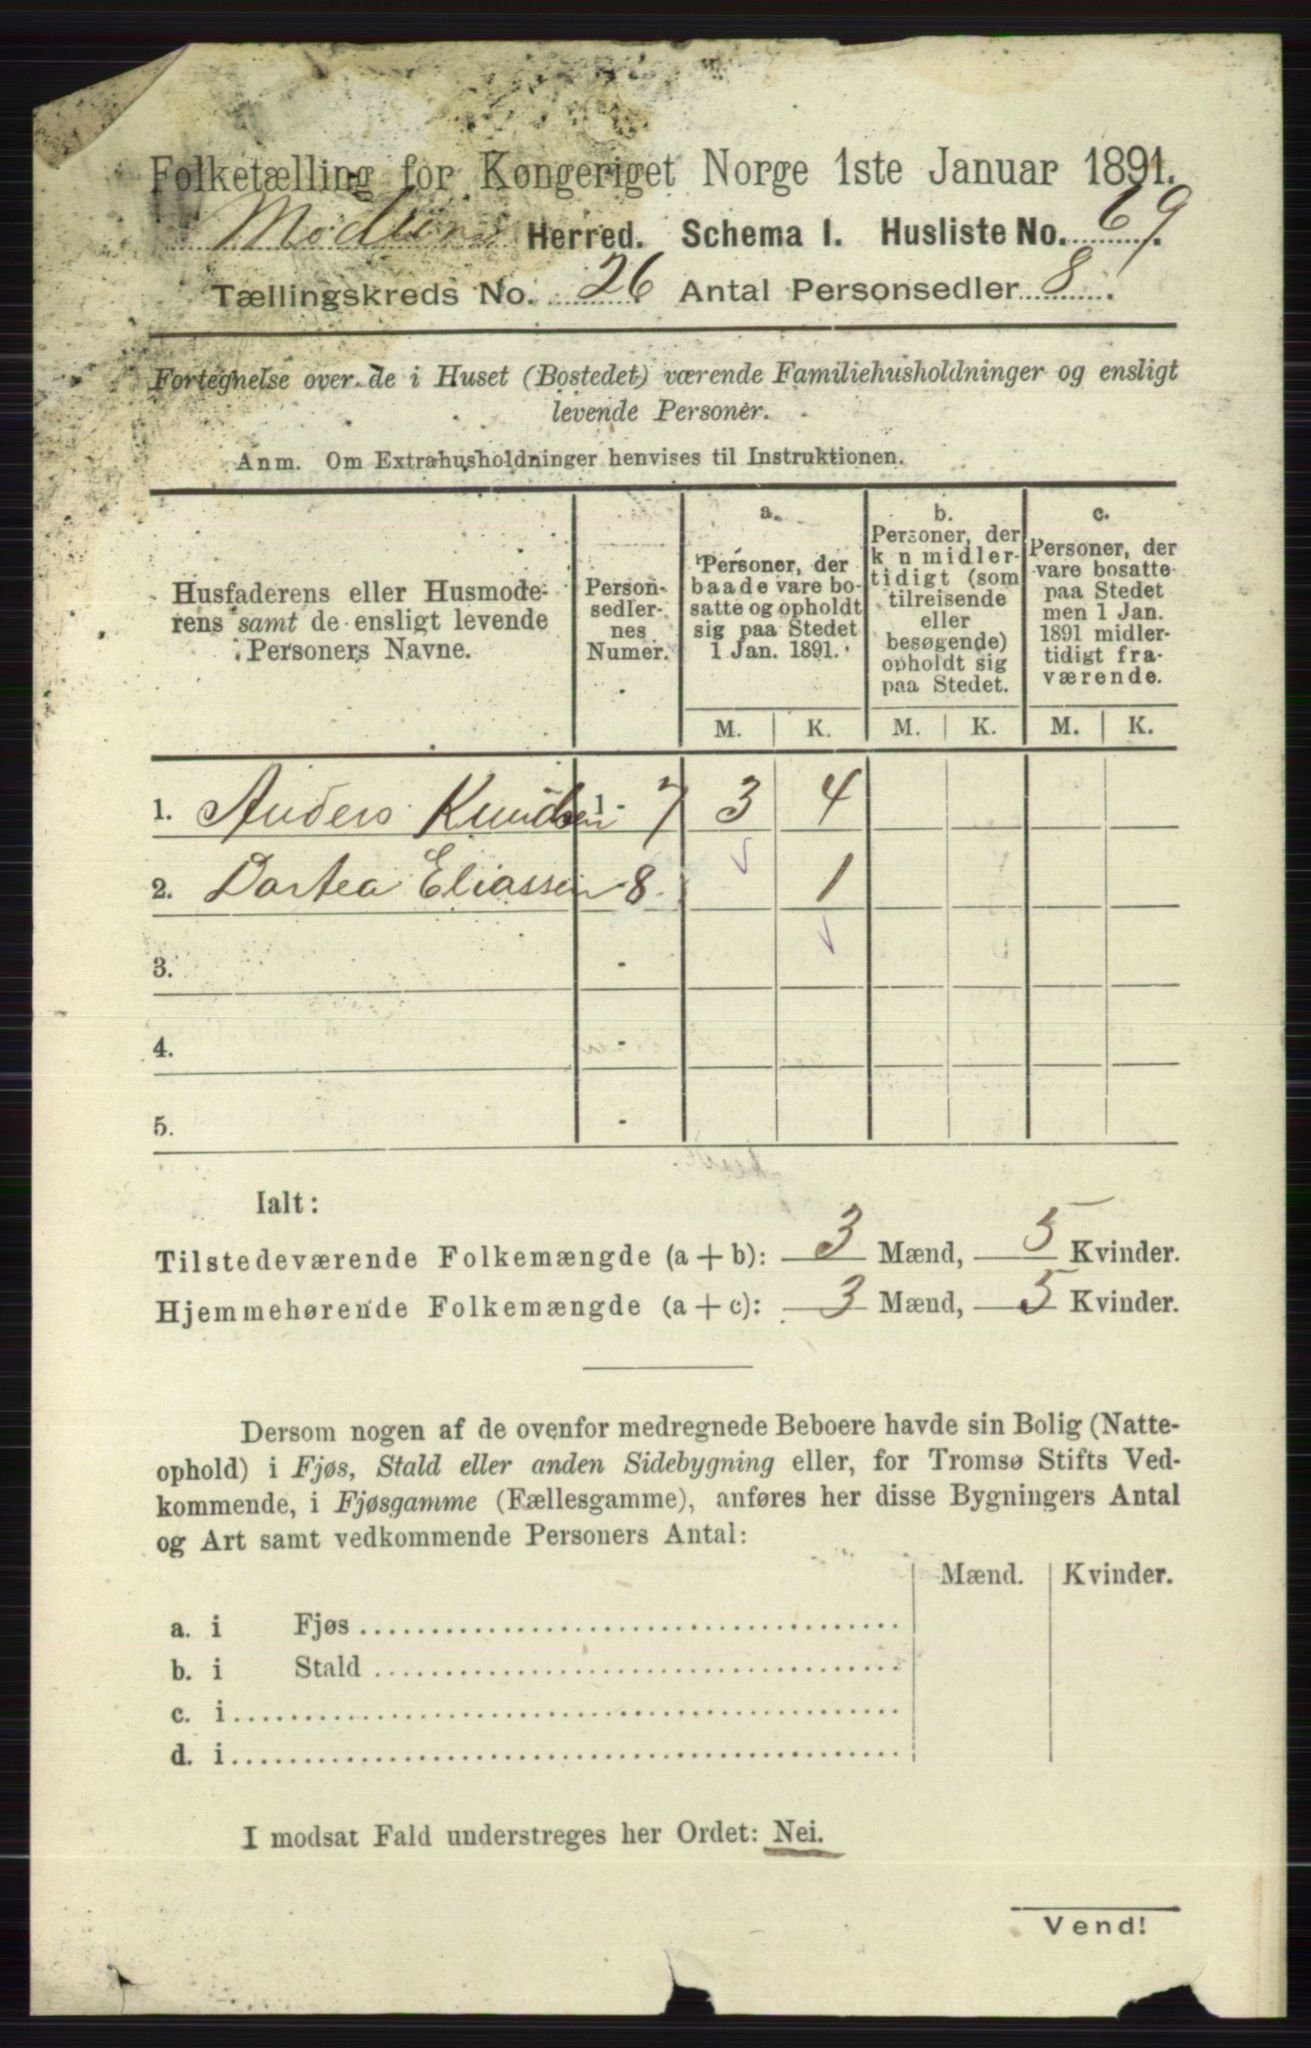 Folketælling for Kongeriget Norge 1ste Januar 1891.
Modum Herred. Schema I. Husliste No. 69.
Tællingskreds No. 26 Antal Personsedler 8.
Fortegnelse over de i Huset (Bostedet) værende Familiehusholdninger og ensligt
levende Personer.
Anm. Om Extrahusholdninger henvises til Instruktionen.
Husfaderens eller Husmode-
rens samt de ensligt levende
Personers Navne.
Person-
sedler-
nes
Numer.
a.
Personer, der
baade vare bo-
satte og opholdt
sig paa Stedet
1 Jan. 1891.
b.
Personer, der
kun midler-
tidigt (som
tilreisende
eller
besøgende)
opholdt sig
paa Stedet.
c.
Personer, der
vare bosatte
paa Stedet
men 1 Jan.
1891 midler-
tidigt fra-
værende.
M. K. M. K. M. K.
1. Anders Knudsen 1 - 7 3 4
2. Dortea Eliassen 8 1
3. -
4. -
5. -
Ialt:
Tilstedeværende Folkemængde (a + b): 3 Mænd, 5 Kvinder.
Hjemmehørende Folkemængde (a + c): 3 Mænd, 5 Kvinder.
Dersom nogen af de ovenfor medregnede Beboere havde sin Bolig (Natte-
ophold) i Fjøs, Stald eller anden Sidebygning eller, for Tromsø Stifts Ved-
kommende, i Fjøsgamme (Fællesgamme), anføres her disse Bygningers Antal
og Art samt vedkommende Personers Antal:
Mænd. Kvinder.
a. i Fjøs
b. i Stald
c. i
d. i
I modsat Fald understreges her Ordet: Nei.
Vend!